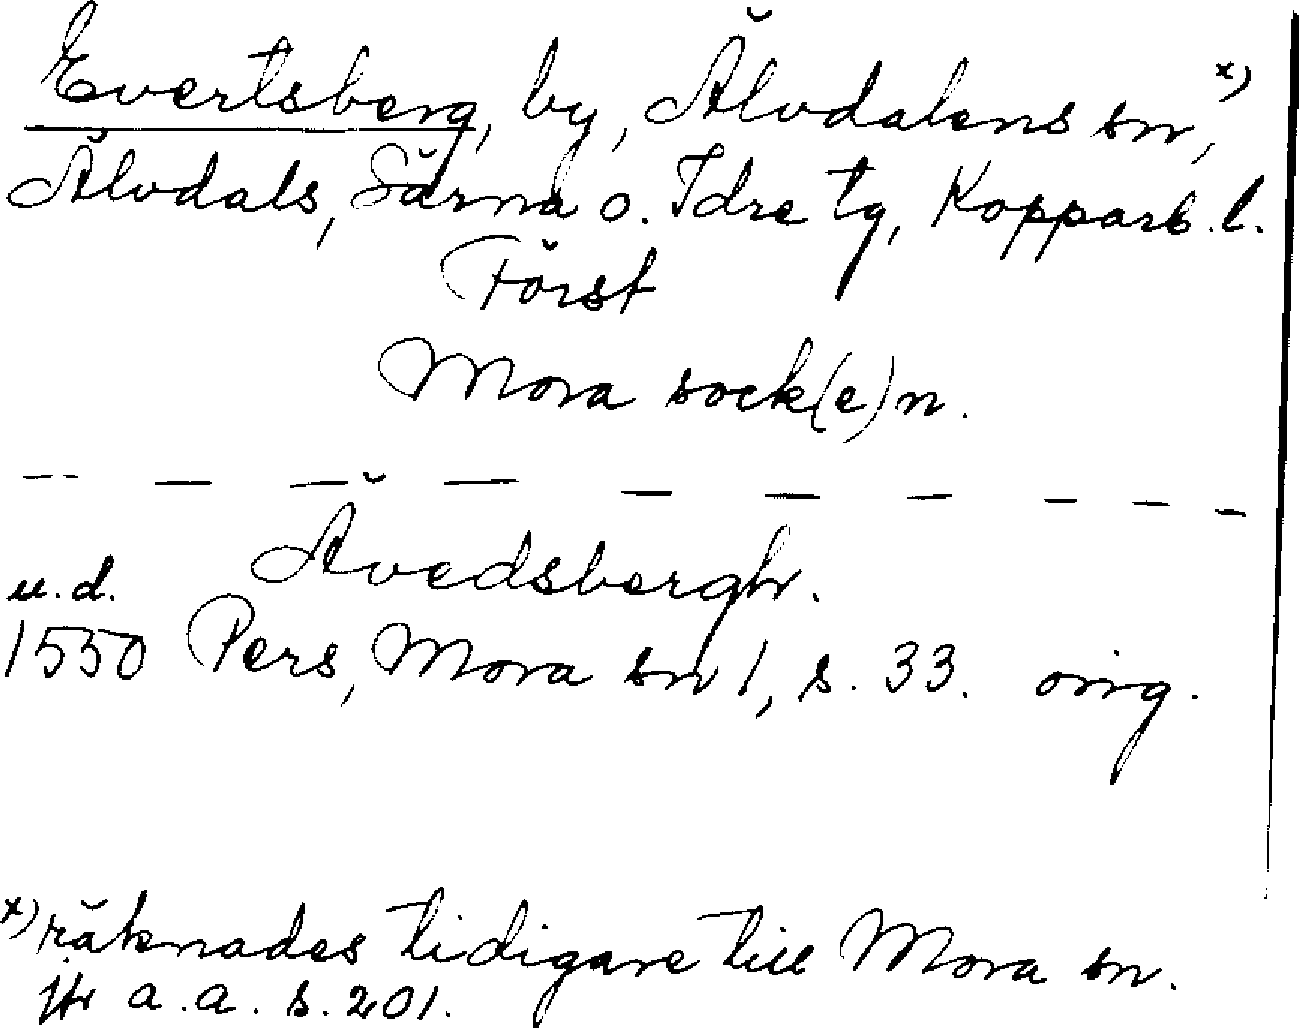 Evertsberg, by, Älvdalens sn, x)
Älvdals, Särna o. Idre tg, Kopparb. l.
Först
Mora sock(e)n.
Ävedsbergh.
u.d.
1550 Pers, Mora sn 1, s. 33. orig.
x) räknades tidigare till Mora sn.
jfr a.a. s. 201.